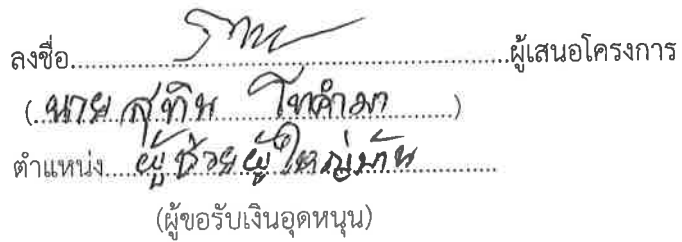 ลงชื่อ..........ผู้เสนอโครงการ
(นาย สุทิน โทคำมา)
ตำแหน่ง ผู้ช่วยผู้ใหญ่บ้าน
(ผู้ขอรับเงินอุดหนุน)